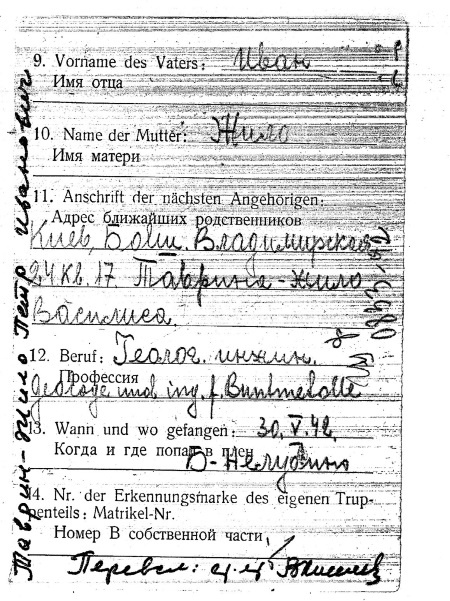 9. Vorname des Vaters: Иван
Имя отца
10. Name der Mutter: Жило
Имя матери
11. Anschrift der nächsten Angehörigen:
Адрес ближайших родственников
Киев, Болш. Владимирская
24 кв. 17. Таврина-Жило
Василиса
12. Beruf: Геолог. инжин.
Профессия
Geologe und ing. f. Buntmetalle
13. Wann und wo gefangen: 30.V.42.
Когда и где попал в плен
Б-Нелудино
14. Nr. der Erkennungsmarke des eigenen Trup-
penteils: Matrikel-Nr.
Номер В собственной части
Перевел:
Таврин-Жило Петр Иванович